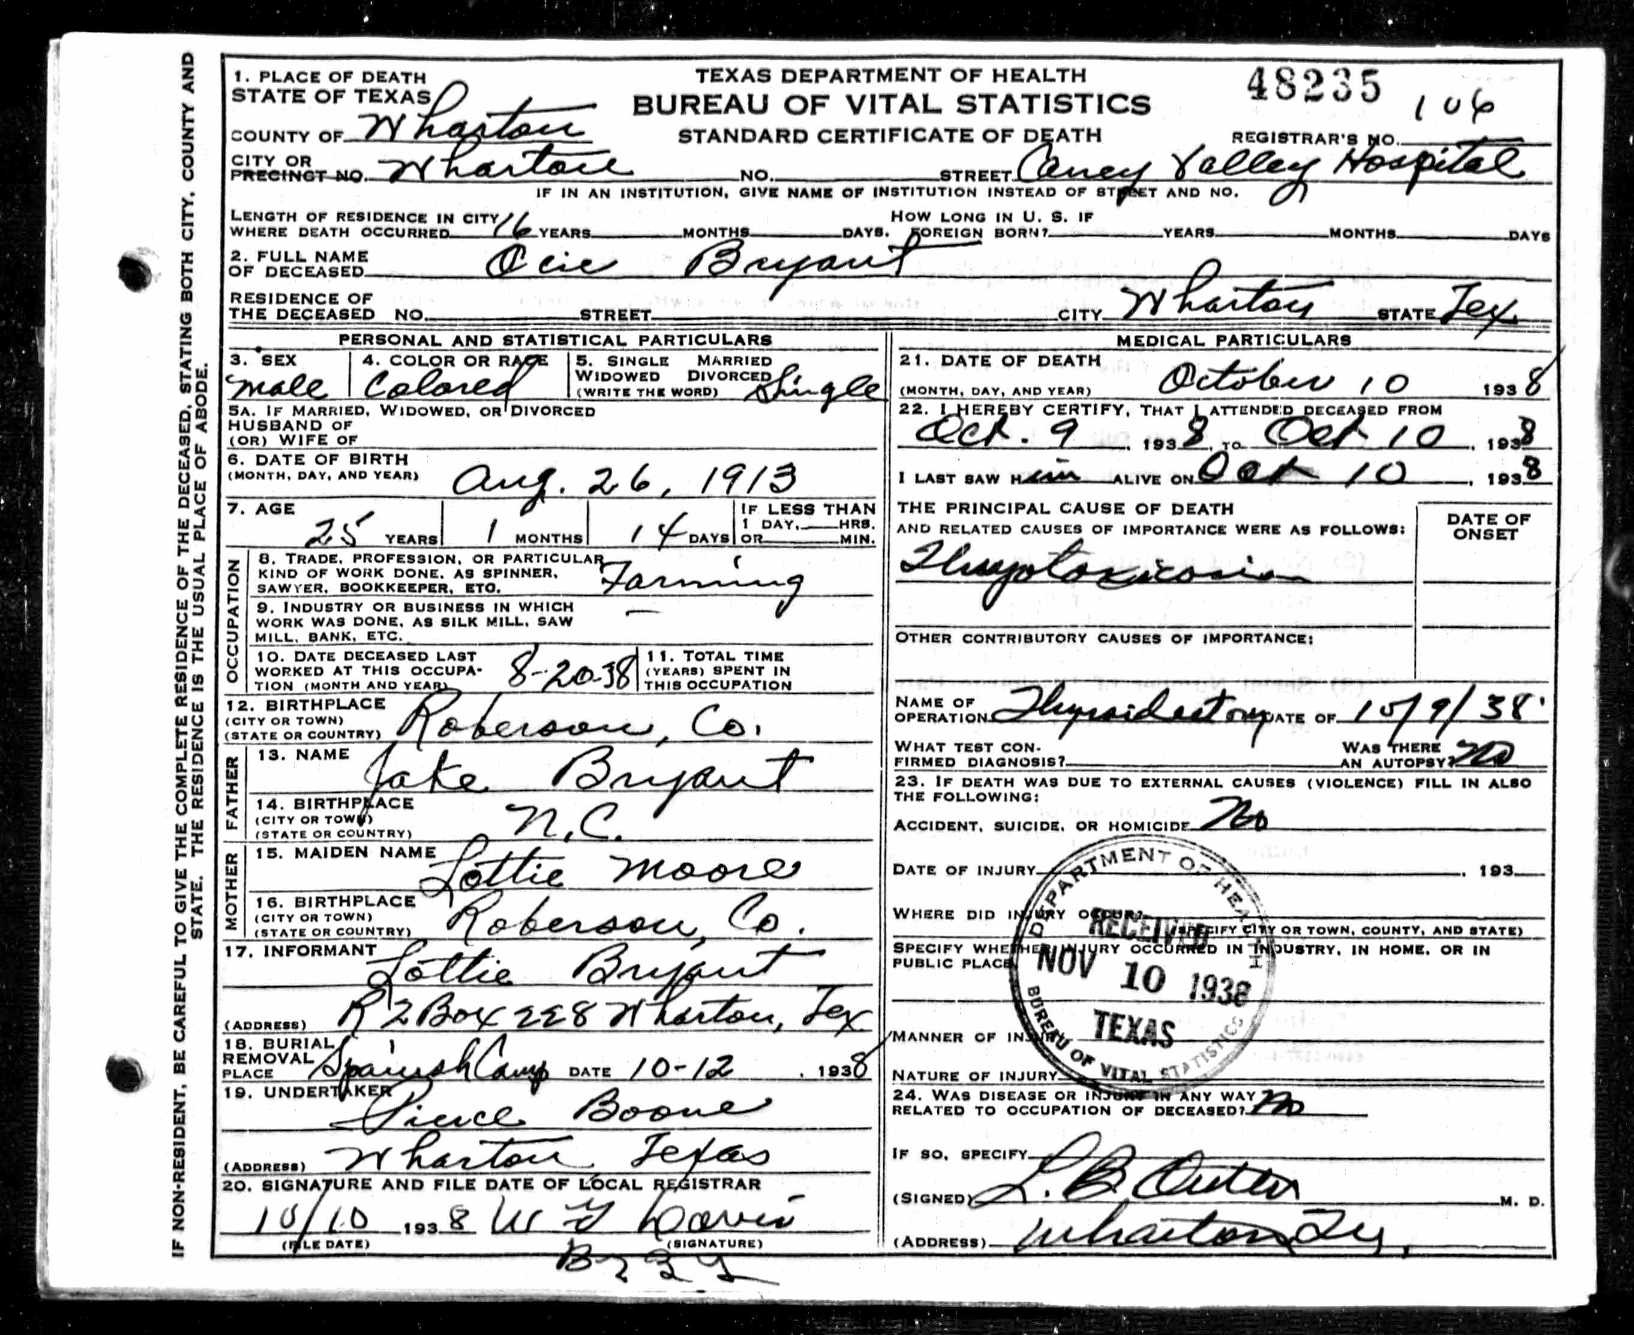 IF NON-RESIDENT, BE CAREFUL TO GIVE THE COMPLETE RESIDENCE OF THE DECEASED, STATING BOTH CITY, COUNTY AND
STATE. THE RESIDENCE IS THE USUAL PLACE OF ABODE.
TEXAS DEPARTMENT OF HEALTH
BUREAU OF VITAL STATISTICS
STANDARD CERTIFICATE OF DEATH
48235
REGISTRAR'S NO. 106
1. PLACE OF DEATH
STATE OF TEXAS
COUNTY OF Wharton
CITY OR
PRECINCT NO. Wharton NO. STREET Caney Valley Hospital
IF IN AN INSTITUTION, GIVE NAME OF INSTITUTION INSTEAD OF STREET AND NO.
LENGTH OF RESIDENCE IN CITY HOW LONG IN U. S. IF
WHERE DEATH OCCURRED 16 YEARS MONTHS DAYS. FOREIGN BORN? YEARS MONTHS DAYS
2. FULL NAME
OF DECEASED Ocie Bryant
RESIDENCE OF
THE DECEASED NO. STREET CITY Wharton STATE Tex
PERSONAL AND STATISTICAL PARTICULARS
3. SEX
Male
4. COLOR OR RACE
Colored
5. SINGLE MARRIED
WIDOWED DIVORCED
(WRITE THE WORD) Single
5A. IF MARRIED, WIDOWED, OR DIVORCED
HUSBAND OF
(OR) WIFE OF
6. DATE OF BIRTH
(MONTH, DAY, AND YEAR) Aug. 26, 1913
7. AGE
25 YEARS 1 MONTHS 14 DAYS
IF LESS THAN
1 DAY, HRS.
OR MIN.
OCCUPATION
8. TRADE, PROFESSION, OR PARTICULAR
KIND OF WORK DONE, AS SPINNER,
SAWYER, BOOKKEEPER, ETC. Farming
9. INDUSTRY OR BUSINESS IN WHICH
WORK WAS DONE, AS SILK MILL, SAW
MILL, BANK, ETC. —
10. DATE DECEASED LAST
WORKED AT THIS OCCUPA-
TION (MONTH AND YEAR) 8-20-38
11. TOTAL TIME
(YEARS) SPENT IN
THIS OCCUPATION
12. BIRTHPLACE
(CITY OR TOWN)
(STATE OR COUNTRY) Roberson, Co.
FATHER
13. NAME Jake Bryant
14. BIRTHPLACE
(CITY OR TOWN)
(STATE OR COUNTRY) N.C.
MOTHER
15. MAIDEN NAME Lottie Moore
16. BIRTHPLACE
(CITY OR TOWN)
(STATE OR COUNTRY) Roberson, Co.
17. INFORMANT Lottie Bryant
(ADDRESS) R 2 Box 228 Wharton, Tex
18. BURIAL
REMOVAL
PLACE Spanish Camp DATE 10-12, 1938
19. UNDERTAKER
Pierce Boone
(ADDRESS) Wharton Texas
20. SIGNATURE AND FILE DATE OF LOCAL REGISTRAR
10/10 1938 W Davis
(FILE DATE) (SIGNATURE)
MEDICAL PARTICULARS
21. DATE OF DEATH
(MONTH, DAY, AND YEAR) October 10 1938
22. I HEREBY CERTIFY, THAT I ATTENDED DECEASED FROM
Oct. 9, 1938, TO Oct 10, 1938
I LAST SAW HIM ALIVE ON Oct 10, 1938
THE PRINCIPAL CAUSE OF DEATH
AND RELATED CAUSES OF IMPORTANCE WERE AS FOLLOWS:
DATE OF
ONSET
Thyrotoxicosis
OTHER CONTRIBUTORY CAUSES OF IMPORTANCE:
NAME OF
OPERATION Thyroidectomy DATE OF 10/9/38
WHAT TEST CON-
FIRMED DIAGNOSIS?
WAS THERE
AN AUTOPSY? No
23. IF DEATH WAS DUE TO EXTERNAL CAUSES (VIOLENCE) FILL IN ALSO
THE FOLLOWING:
ACCIDENT, SUICIDE, OR HOMICIDE No
DATE OF INJURY , 193
WHERE DID INJURY OCCUR?
(SPECIFY CITY OR TOWN, COUNTY, AND STATE)
SPECIFY WHETHER INJURY OCCURRED IN INDUSTRY, IN HOME, OR IN
PUBLIC PLACE
MANNER OF INJURY
NATURE OF INJURY
DEPARTMENT OF HEALTH
RECEIVED
NOV 10 1938
TEXAS
BUREAU OF VITAL STATISTICS
24. WAS DISEASE OR INJURY IN ANY WAY
RELATED TO OCCUPATION OF DECEASED? No
IF SO, SPECIFY
(SIGNED) L. B. Outlar M. D.
(ADDRESS) Wharton, Tex.